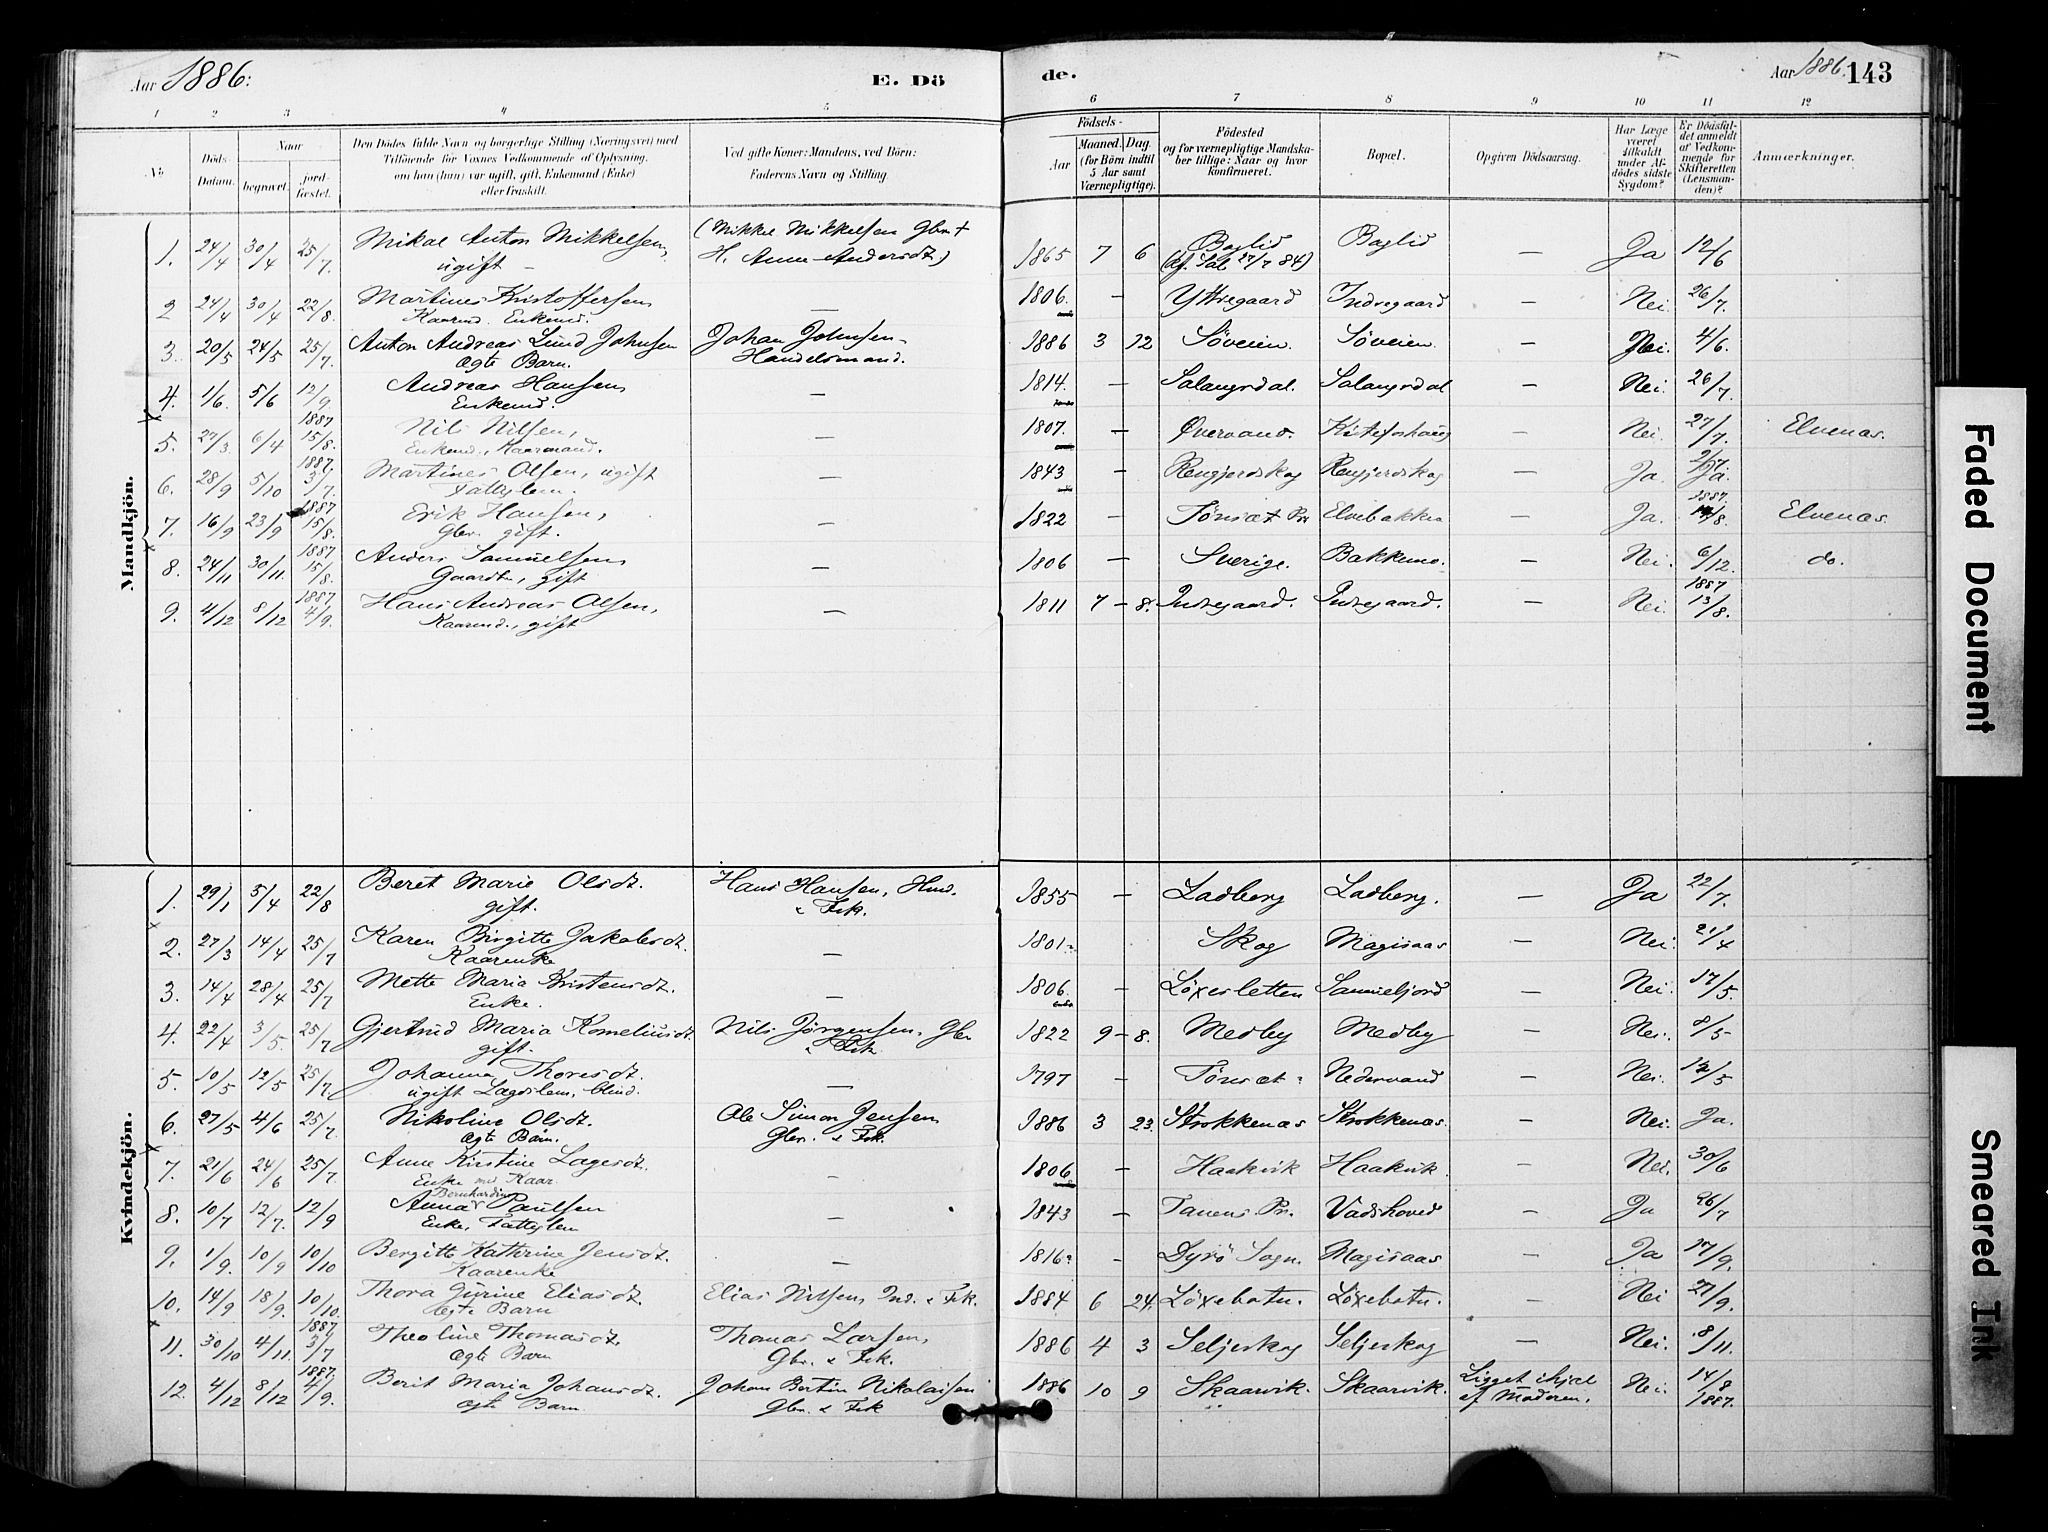 Aar 1886. E. Dö
de. Aar 1886. 143
1 2 3 4 5 6 7 8 9 10 11 12
No
Döds-Datum.
Naar
begravet.
jord-fæstet.
Den Dödes fulde Navn og borgerlige Stilling (Næringsvei) med
Tilföiende för Voxnes Vedkommende af Oplysning,
om han (hun) var ugift, gift, Enkemand (Enke)
eller fraskilt.
Ved gifte Koner: Mandens, ved Börn:
Faderens Navn og Stilling.
Födsels-
Aar
Maaned. Dag.
(for Börn indtil
5 Aar samt
Værnepligtige).
Födested
og for værnepligtige Mandska-
ber tillige: Naar og hvor
konfirmeret.
Bopæl.
Opgiven Dödsaarsag.
Har Læge
været
tilkaldt
under Af-
dödes sidste
Sygdom?
Er Dödsfal-
det anmeldt
af Vedkom-
mende for
Skifteretten
(Lensman-
den)?
Anmærkninger.
Mandkjön.
1. 24/4 30/4 25/7. Mikal Anton Mikkelsen, (Mikkel Mikkelsen Gbr. + 1865 7 6 Boglid Boglid — Ja 12/6
ugift — H. Anne Andersdt.) 27/7 84)
2 24/4 30/4 22/8. Martines Kristoffersen — 1806. — Yttregaard Indregaard — Nei. 26/7.
Kaarmd. Enkemd.
3. 20/5 24/5 25/7. Anton Andreas Lund Johnsen Johan Johnsen 1886 3 12 Söveien. Söveien. — Nei. 4/6.
Ægte Barn. Handelsmand.
4. 1/6. 5/6 12/9. Andreas Hansen — 1814. — Salangsdal. Salangsdal — Nei. 26/7.
Enkemd.
5. 27/3 6/4 1887 15/8. Nils Nilsen, — 1807. — Övervand. — Nei. 27/7. Elvenæs.
Enkemd., Kaarmand.
6. 28/9 5/10 1887. 3/7. Martines Olsen, ugift — 1843 — Rengjerdskog Rengjerdskog — Ja. Ja.
Fattiglem.
7. 16/9 23/9 1887 15/8. Erik Hansen, — 1822 — Tönsæt Pr. Elvebakken — Ja. 1887. Elvenæs.
Gbr. gift.
8. 24/11 30/11. 1887 15/8. Anders Samuelsen — 1806 — Sverige. Bakkemo. — Nei. 6/12. do.
gift
9. 4/12 8/12 1887 4/9. Hans Andreas Olsen, — 1811 7 – 8. Indregaard. Indregaard. — Nei. 1887 13/8.
Kaarmd., gift
Kvindekjön.
1. 29/1 5/4 22/8 Beret Marie Olsdt. Hans Hansen, Hmd. 1855 — Ladberg Ladberg. — Ja 22/7.
gift. & Fsk.
2. 27/3 14/4 25/7 Karen Birgitte Jakobsdt. — 1801. Skog Magisaas — Nei. 21/4
Kaarenke
3. 14/4 28/4 25/7 Mette Maria Kristensdt. — 1806. — Löxesletten — Nei. 17/5.
Enke.
4. 22/4 3/5. 25/7 Gjertrud Maria Korneliusdt. Nils Jörgensen, Gbr. 1822 9 – 8. Medby Medby — Nei. 8/5
gift. & Fsk.
5. 10/5 12/5 25/7 Johanna Thoresdt. — 1797 — Tönsæt. Nedervand — Nei.
ugift Lægdslem, blind.
6. 27/5 4/6 25/7. Nikoline Olsdt. Ole Simon Jensen 1886 3 23. Strokkenæs Strokkenæs. — Nei. Ja.
Ægte Barn. Gbr. & Fsk.
7. 21/6 24/6 25/7. Anne Kirstine Lagesdt. — 1806. — Haakvik Haakvik. — Nei. 30/6
Enke md Kaar
Bernhardin
8. 10/7 12/7. 12/9 Anna Paulsen — 1843 — Tanens Pr. Vadshoved — Ja 26/7
Enke, Fattiglem
9. 1/9. 10/9 10/10 Bergitte Kathrine Jensdt. — 1816. — Dyrö Sogn. Magisaas — Ja 17/9.
Kaarenke
10. 14/9. 18/9. 10/10. Thora Jörine Eliasdt. Elias Nilsen, Ind. & Fsk. 1884 6 24. Löxebotn. Löxebotn. — Nei 27/9.
Ægte Barn
11. 30/10 4/11. 1887 3/7 Theoline Thomasdt. Thomas Larsen, 1886 4 3 Seljeskog Seljeskog — Nei. 8/11.
Ægte Barn Gbr. & Fsk.
12. 4/12 8/12 1887. 4/9. Berit Maria Johansdt. Johan Bertin Nikolaisen 1886 10 9 Skaarvik. Skaarvik. Ligget ihjæl Nei. 14/8
Ægte Barn. Gbr. & Fsk af Moderen. 1887.
Faded Document
Smeared Ink